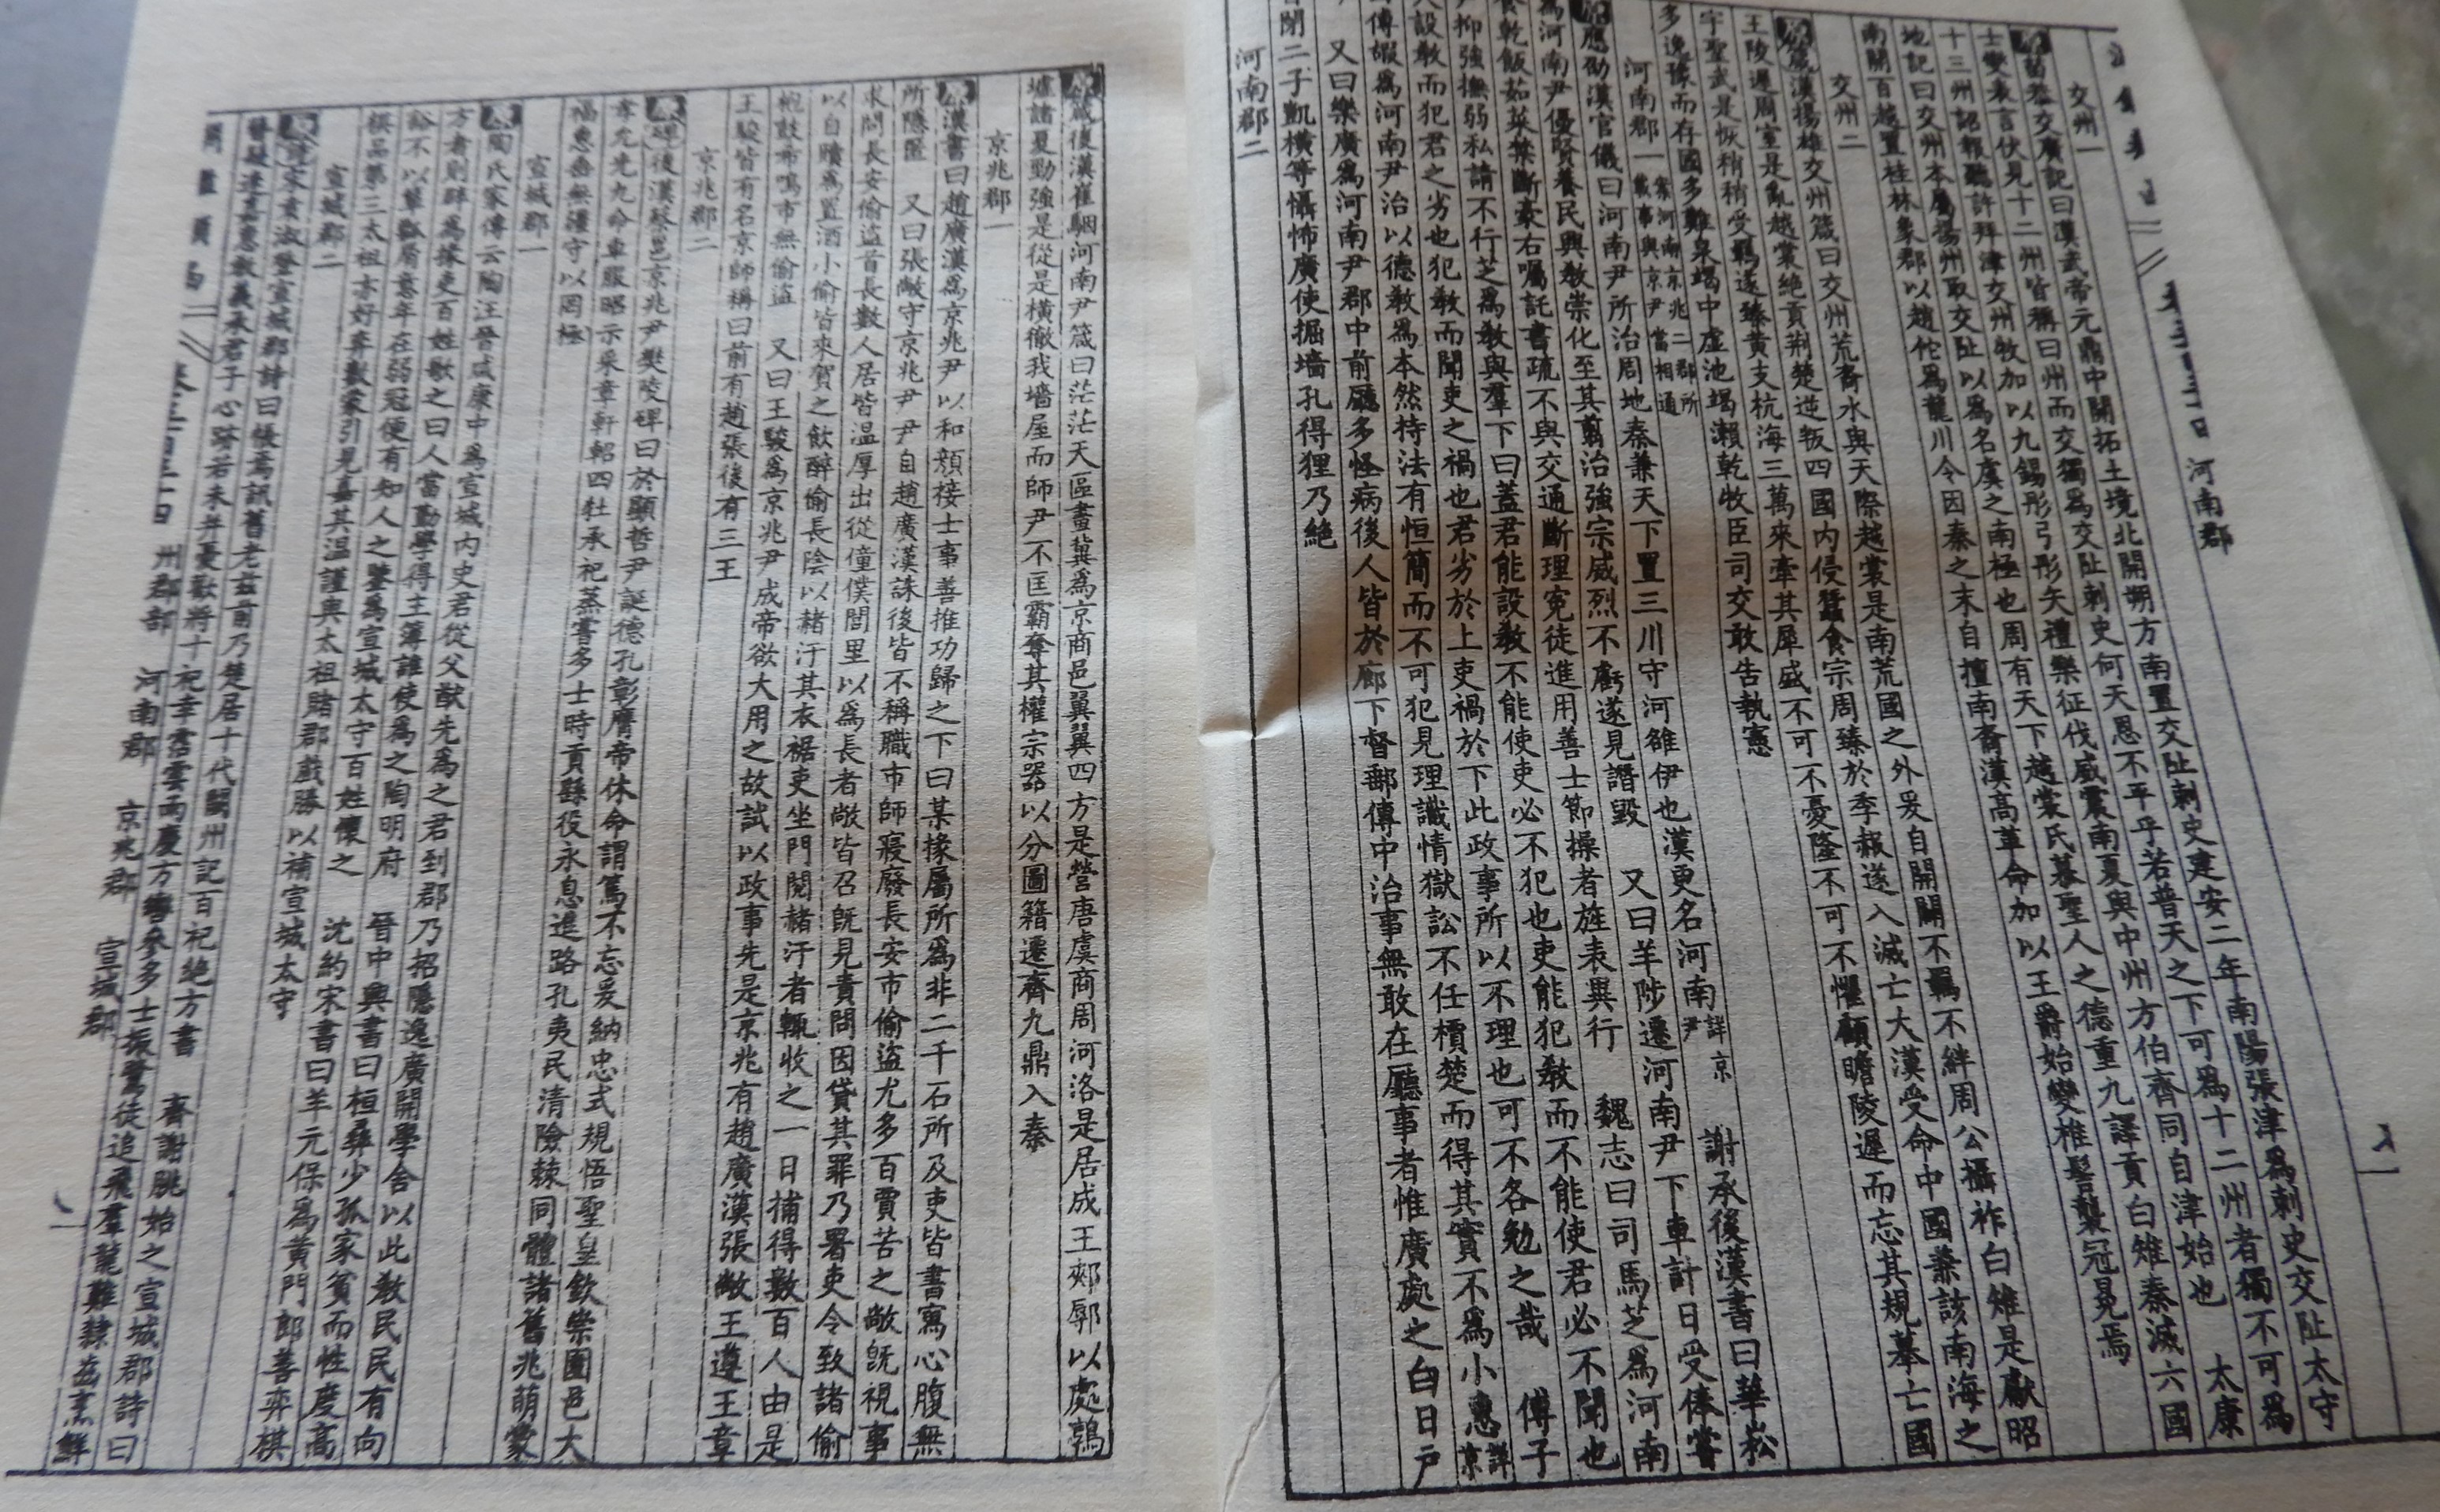 河南郡
交州一
苗恭交廣記曰漢武帝元鼎中開拓土境北開朔方南置交趾刺史建安二年南陽張津爲刺史交趾太守
士燮表言伏見十二州皆稱曰州而交獨爲交趾刺史何天恩不平乎若普天之下可爲十二州者獨不可爲
十三州詔報聽許拜津交州牧加以九錫彤弓彤矢禮樂征伐威震南夏與中州方伯齊同自津始也 太康
地記曰交州本屬揚州取交趾以爲名虞之南極也周有天下越裳氏慕聖人之德重九譯貢白雉秦滅六國
南開百越置桂林象郡以趙佗爲龍川令因秦之末自擅南裔漢高革命加以王爵始變椎髻襲冠冕焉
交州二
箴漢揚雄交州箴曰交州荒裔水與天際越裳是南荒國之外爰自開闢不羈不絆周公攝祚白雉是獻昭
王陵遲周室是亂越裳絕貢荆楚逆叛四國內侵蠶食宗周臻於季赧遂入滅亡大漢受命中國兼該南海之
宇聖武是恢稍稍受羈遂臻黃支杭海三萬來牽其犀盛不可不憂隆不可不懼顧瞻陵遲而忘其規摹亡國
多逸豫而存國多難泉竭中虛池竭瀨乾牧臣司交敢告執憲
河南郡一 案河南京兆二郡所載事與京尹當相通
應劭漢官儀曰河南尹所治周地秦兼天下置三川守河雒伊也漢更名河南尹詳京 謝承後漢書曰華崧
爲河南尹優賢養民興敎崇化至其剪治強宗威烈不虧遂見譖毀 又曰羊陟遷河南尹下車計日受俸嘗
食乾飯茹菜禁斷豪右囑託書疏不與交通斷理寃徒進用善士節操者旌表異行 魏志曰司馬芝爲河南
尹抑強撫弱私請不行芝爲敎與羣下曰蓋君能設敎不能使吏必不犯也吏能犯敎而不能使君必不聞也
夫設敎而犯君之劣也犯敎而聞吏之禍也君劣於上吏禍於下此政事所以不理也可不各勉之哉 傅子
曰傅嘏爲河南尹治以德敎爲本然持法有恒簡而不可犯見理識情獄訟不任檟楚而得其實不爲小惠詳京
尹 又曰樂廣爲河南尹郡中前廳多怪病後人皆於廊下督郵傳中治事無敢在廳事者惟廣處之白日戶
自閉二子凱橫等懾怖廣使掘墻孔得狸乃絕
河南郡二
箴後漢崔駰河南尹箴曰茫茫天區畫冀爲京商邑翼翼四方是營唐虞商周河洛是居成王郟鄏以處鶉
墟諸夏勁強是從是橫徹我墻屋而師尹不匡霸奪其權宗器以分圖籍遷齊九鼎入秦
京兆郡一
漢書曰趙廣漢爲京兆尹以和顏接士事善推功歸之下曰某掾屬所爲非二千石所及吏皆書寫心腹無
所隱匿 又曰張敞守京兆尹尹自趙廣漢誅後皆不稱職市師寖廢長安市偷盜尤多百賈苦之敞旣視事
求問長安偷盜首長數人居皆溫厚出從僮僕閭里以爲長者敞皆召旣見責問因貸其罪乃署吏令致諸偷
以自贖爲置酒小偷皆來賀之飲醉偷長陰以赭汙其衣裾吏坐門閱赭汙者輒收之一日捕得數百人由是
枹鼓希鳴市無偷盜 又曰王駿爲京兆尹成帝欲大用之故試以政事先是京兆有趙廣漢張敞王遵王章
王駿皆有名京師稱曰前有趙張後有三王
京兆郡二
碑後漢蔡邕京兆尹樊陵碑曰於顯哲尹誕德孔彰膺帝休命謂篤不忘爰納忠式規悟聖皇欽崇園邑大
孝允光九命車服昭示采章軒軺四牡承祀蒸嘗多士時貢縣役永息進路孔夷民淸險棘同體諸舊兆萌蒙
福惠垂無疆守以罔極
宣城郡一
陶氏家傳云陶汪晉咸康中爲宣城內史君從父猷先爲之君到郡乃招隱逸廣開學舍以此敎民民有向
方者則辟爲掾吏百姓歌之曰人當勤學得主簿誰使爲之陶明府 晉中興書曰桓彝少孤家貧而性度高
豁不以簞瓢屑意年在弱冠便有知人之鑒爲宣城太守百姓懷之 沈約宋書曰羊元保爲黃門郎善弈棋
棋品第三太祖亦好弈數蒙引見嘉其溫謹與太祖賭郡戲勝以補宣城太守
宣城郡二
詩宋袁淑登宣城郡詩曰悵焉訊舊老茲前乃楚居十代闕州記百祀絕方書 齊謝朓始之宣城郡詩曰
疑逢嘉惠敎義承君子心跡若未幷憂歡將十祀幸霑雲雨慶方轡參多士振鷺徒追飛羣龍難隸齒烹鮮
州郡部 河南郡 京兆郡 宣城郡